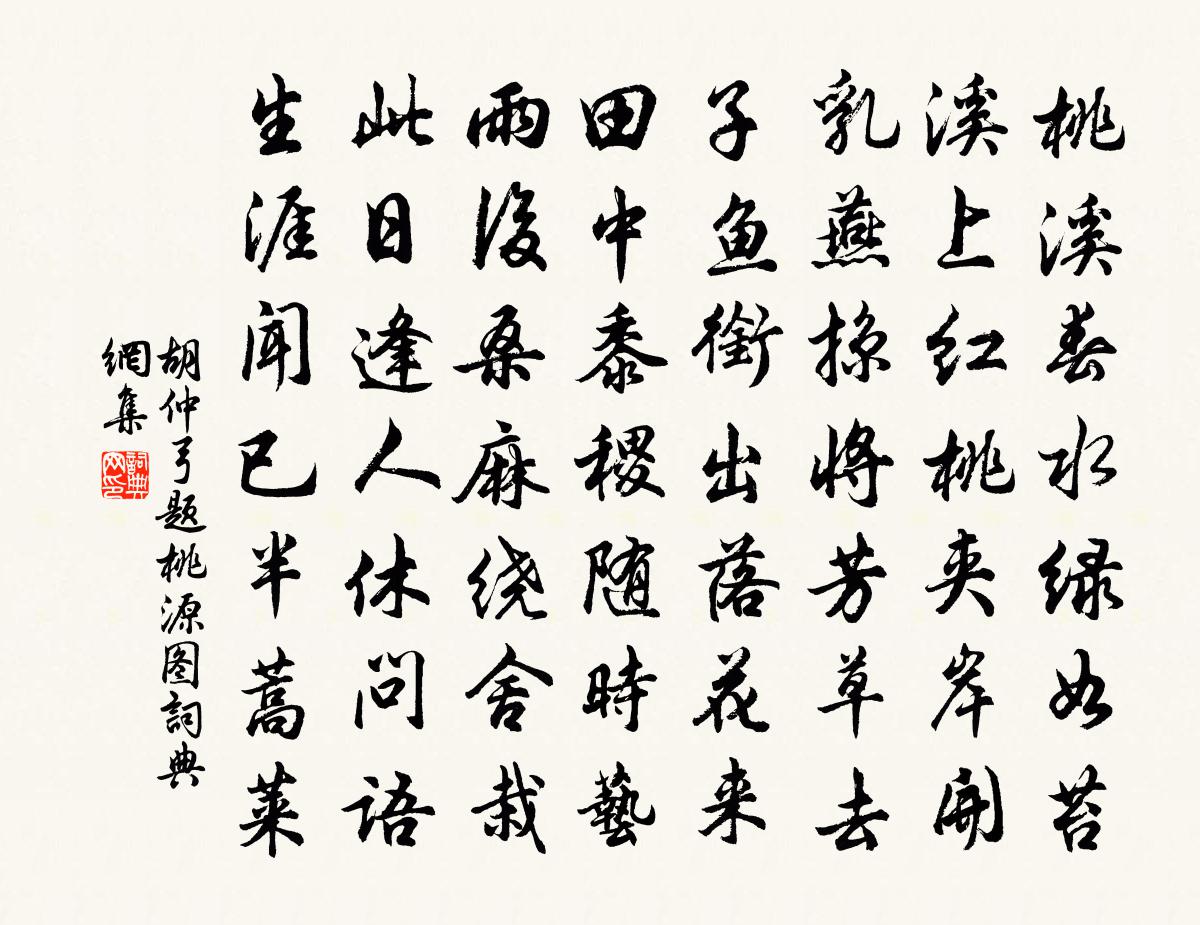 桃溪春水绿如苔
溪上红桃夹岸開
乳燕掠将芳草去
子鱼銜出落花来
田中黍稷随時藝
雨後桑麻绕舍栽
此日逢人休问语
生涯闻已半蒿莱
胡仲弓题桃源图詞典
網集
詞典网印